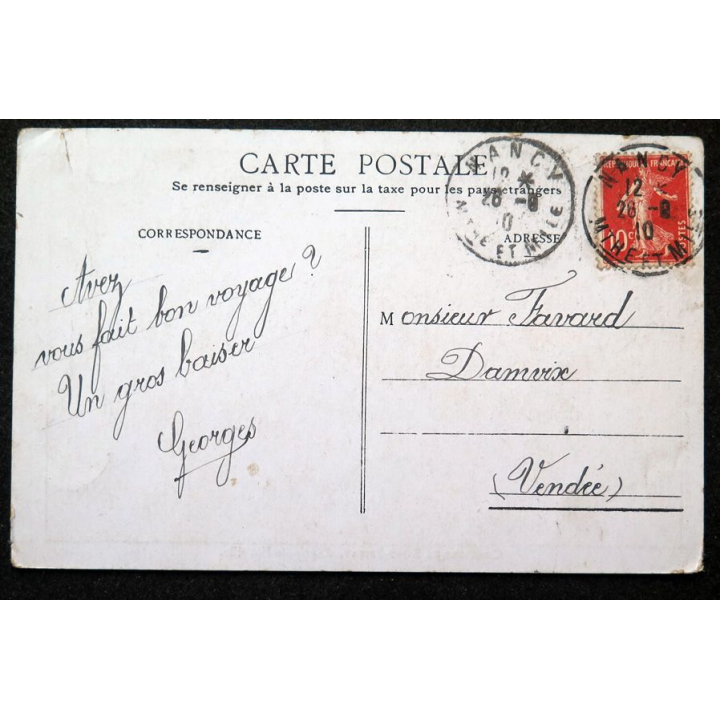 CARTE POSTALE
Se renseigner à la poste sur la taxe pour les pays étrangers
CORRESPONDANCE
ADRESSE
Avez
vous fait bon voyage ?
Un gros baiser
Georges
Monsieur Favard
Damvix
(Vendée)
NANCY
12 *
26 -8
10
MTHE ET MLLE
NANCY
12 *
26 -8
10
MTHE ET M
10c
POSTES